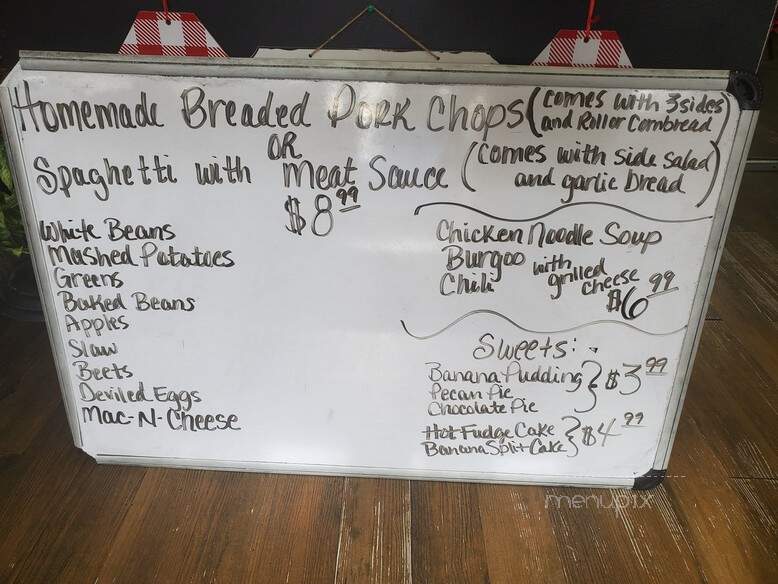 Homemade Breaded Pork Chops (comes with 3 sides and Roll or Cornbread)
OR
Spaghetti with Meat Sauce (comes with side salad and garlic bread)
$8.99
White Beans
Mashed Potatoes
Greens
Baked Beans
Apples
Slaw
Beets
Deviled Eggs
Mac-N-Cheese
Chicken Noodle Soup
Burgoo
Chili
with grilled cheese
$6.99
Sweets:
Banana Pudding } $3.99
Pecan Pie
Chocolate Pie
Hot Fudge Cake } $4.99
Banana Split Cake
menupix